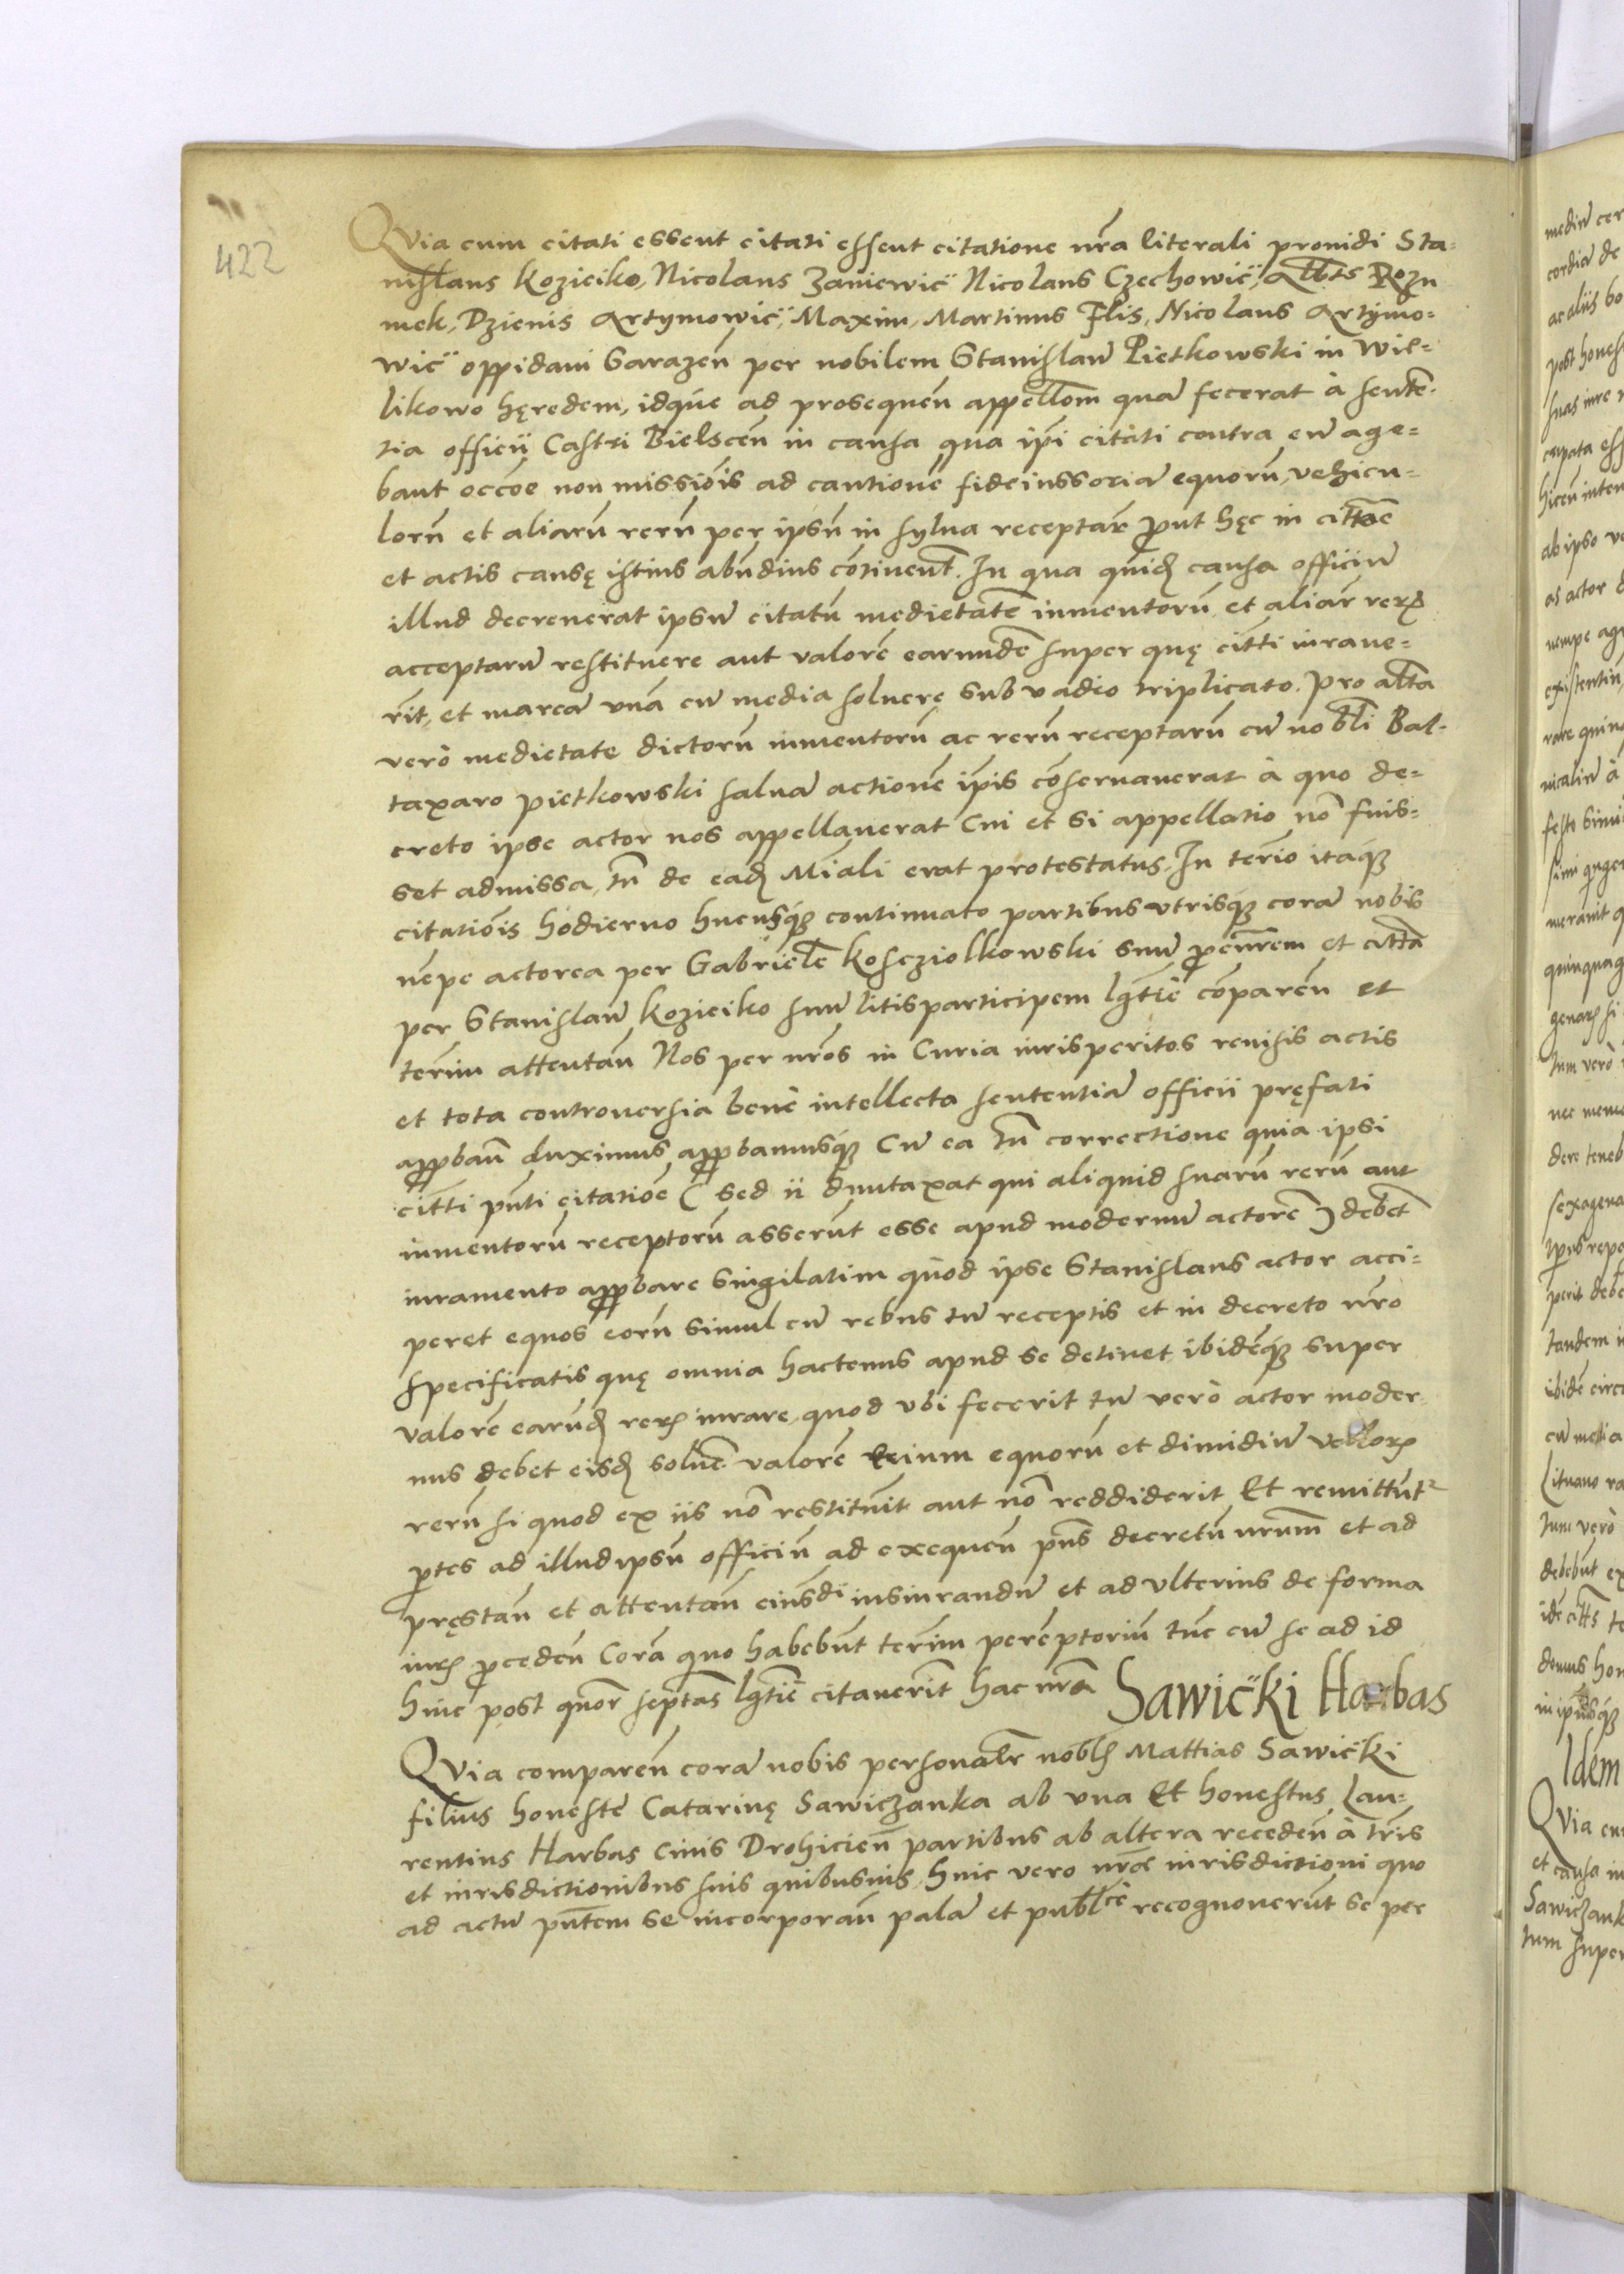 422
QVia cum citati essent citati essent citatione nr̃a literali prouidi Sta-
nislaus Kozieiko, Nicolaus Zaniewic̈ Nicolaus Czechowic̈, Alb̃ts Rozu
mek, Dzienis Artymowic̈, Maxim, Martinus Flis, Nicolaus Artymo-
wic̈ oppidani Sarazeñ per nobilem Stanislaũ Pietkowski in Wie-
likowo hęredem, idq́ue ad prosequeñ appellõm quã fecerat à senteñ-
tia officii Castri Bielsceñ in causa qua ip̃i citati contra eũ age-
bant occõe non missiõis ad cautionẽ fideiussoriã equorũ, vehicu-
lorũ et aliarũ rerũ per ipsũ in sylua receptar̃ put hęc in cittõe
et actis causę istius abũdius cõtinent̃. In qua quid̃ causa officiũ
illud decreuerat ipsũ citatũ medietatẽ iumentorũ et aliar̃ rerũ
acceptarũ restituere aut valorẽ earundẽ super quę citt̃i iuraue-
rĩt, et marcã vnã cũ media soluere sub vadio triplicato. Pro alt̃a
verò medietate dictorũ iumentorũ ac rerũ receptarũ cũ nobl̃i Bal-
taxaro Pietkowski saluã actionẽ ip̃is cõseruauerat à quo de-
creto ipse actor nos appellauerat Cui et si appellatio nõ fuis-
set admissa, tñ de ead̃ Miãli erat protestatus. In ter̃io itaq́
citatiõis hodierno hucusq́ continuato partibus vtrisq́ corã nobis
nẽpe actorea per Gabrielẽ Kosczíolkowski suũ pcur̃em et citt̃a
per Stanislaũ Kozieiko suũ litisparticipem lg̃tiẽ cõpareñ et
ter̃im attentañ Nos per nr̃os in Curia iurisperitos reuisis actis
et tota controuersia benè intellecta sententiã officii pręfati
appbañ duximus appbamusq́ Cũ ea tñ correctione quia ipsi
citt̃i pñti citatiõe ( sed ii duntaxat qui aliquid suarũ rerũ aut
iumentorũ receptorũ asserũt esse apud modernũ actorẽ ) debẽt
iuramento appbare singilatim quòd ipse Stanislaus actor acci-
peret equos eorũ simul cũ rebus tũ receptis et in decreto nr̃o
specificatis quę omnia hactenus apud se detinet ibidẽq́ super
valorẽ earũd̃ rerũ iurare, quod vbi fecerit tũ verò actor moder-
nus debet eisd̃ soluẽ valorẽ equorũ et dimidiũ
rerũ si quod ex iis nõ restituĩt aut nõ reddiderit Et remittũtr
ptes ad illud ipsũ officiũ ad exequeñ pñs decretũ nr̃um et ad
pręstañ et attentañ eiusdi iusiurandũ et ad vlterius de forma
iurs pcedeñ Corã quo habebũt ter̃im perẽptoriũ tũc cũ se ad id
hinc post quor̃ septãs lg̃tiẽ citauerĩt hac nr̃a
Sawic̈ki Harbas
QVia compareñ corã nobis personalr̃ nobl̃s Mattias Sawic̈ki
filius honestę Catarinę Sawiczanka ab vna Et honestus Lau-
rentius Harbas Ciuis Drohicieñ partibus ab altera recedeñ à tr̃is
et iurisdictionibus suis quibusuis, huic vero nr̃ę iurisdictioni quo
ad actũ pñtem se incorporañ palã et publ̃cè recognouerũt se per